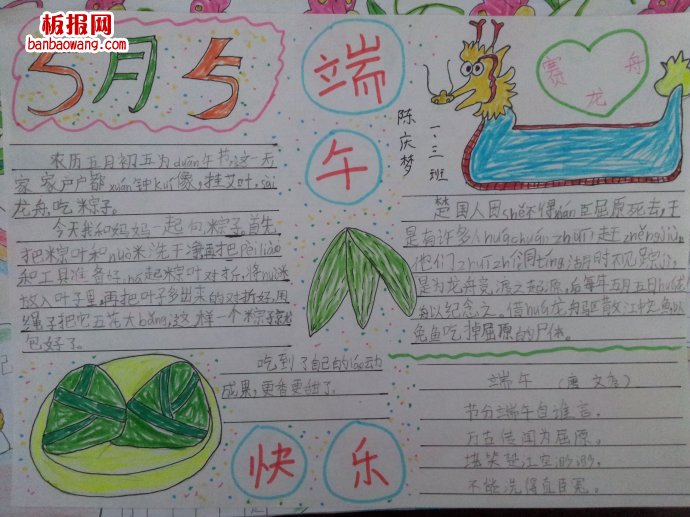 板报网
banbaowang.com
5月5
端
午
快
乐
赛
龙
舟
陈庆梦
一.三班
农历五月初五为duān午节,这一天
家家户户都xuán钟kuí像,挂艾叶,sài
龙舟,吃粽子。
今天我和妈妈一起包粽子,首先
把粽叶和nuò米洗干净再把pèiliào
和工具准备好,ná起粽叶对折,将nuò米
放入叶子里,再把叶子多出来的对折好,用
绳子把它五花大bǎng,这样一个粽子就
包好了。
吃到了自己的láo动
成果,更香更甜了。
楚国人因shě不得xián臣屈原死去,于
是有许多人huáchuán zhuī赶zhěngjiù,
他们zhuī至洞tíng湖时不见踪迹,
是为龙舟竞渡之起源,后每年五月五日huá龙
舟以纪念之。借huá龙舟驱散江中之鱼以
免鱼吃掉屈原的尸体。
端午 (唐 文秀)
节分端午自谁言,
万古传闻为屈原。
堪笑楚江空
不能洗得直臣冤。